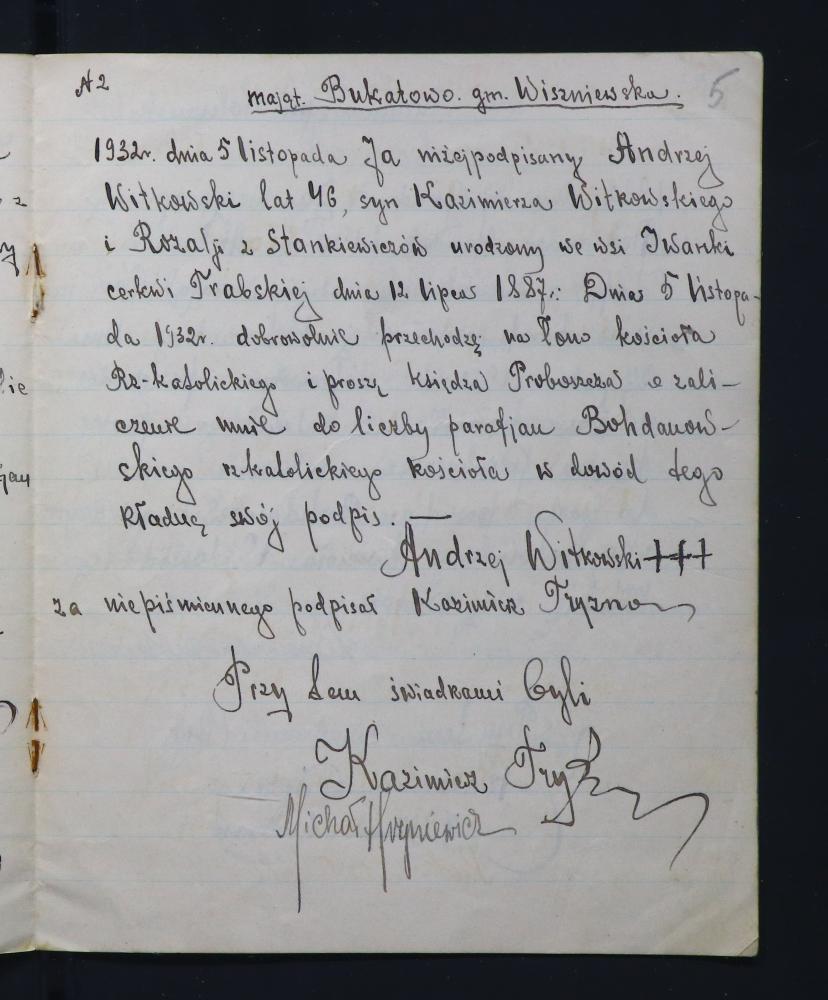 N2
mająt. Bukatowo. gm. Wiszniewska. 5
1932r. dnia 5 listopada Ja niżejpodpisany Andrzej
Witkowski lat 46, syn Kazimierza Witkowskiego
i Rozalji z Stankiewiczów urodzony we wsi Iwanki
cerkwi Trabskiej dnia 12 lipca 1887r: Dnia 5 listopa-
da 1932r. dobrowolnie przechodzę na łono kościoła
Rz-katolickiego i proszę księdza Proboszcza o zali-
czenie mnie do liczby parafjan Bohdanow-
skiego rzkatolickiego kościoła w dowód tego
kładnę swój podpis. —
Andrzej Witkowski +++
za niepiśmiennego podpisał Kazimierz Tryzno
Przy tem świadkami byli
Kazimierz
Michał Hryniewicz